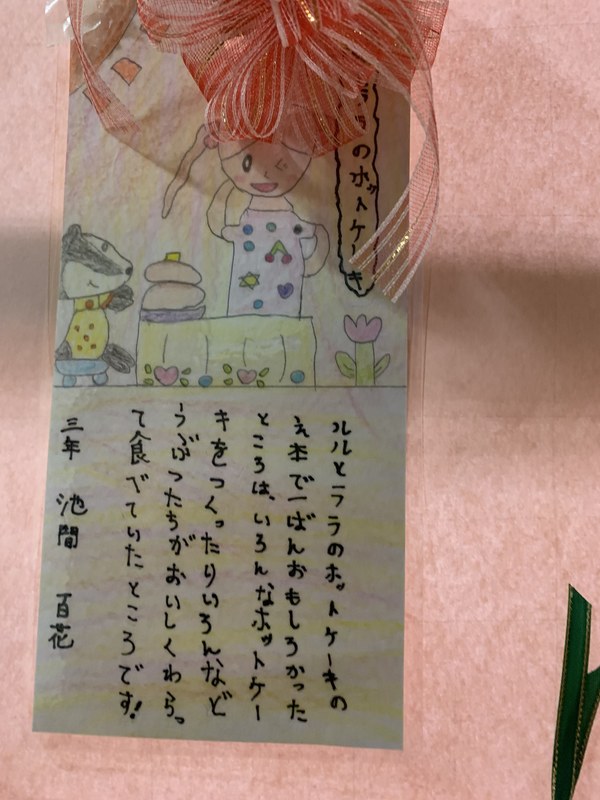 のホットケーキ
ルルとララのホットケーキの
え本で一ばんおもしろかった
ところは、いろんなホットケー
キをつくったりいろんなど
うぶつたちがおいしくわらっ
て食べていたところです!
三年 池間 百花